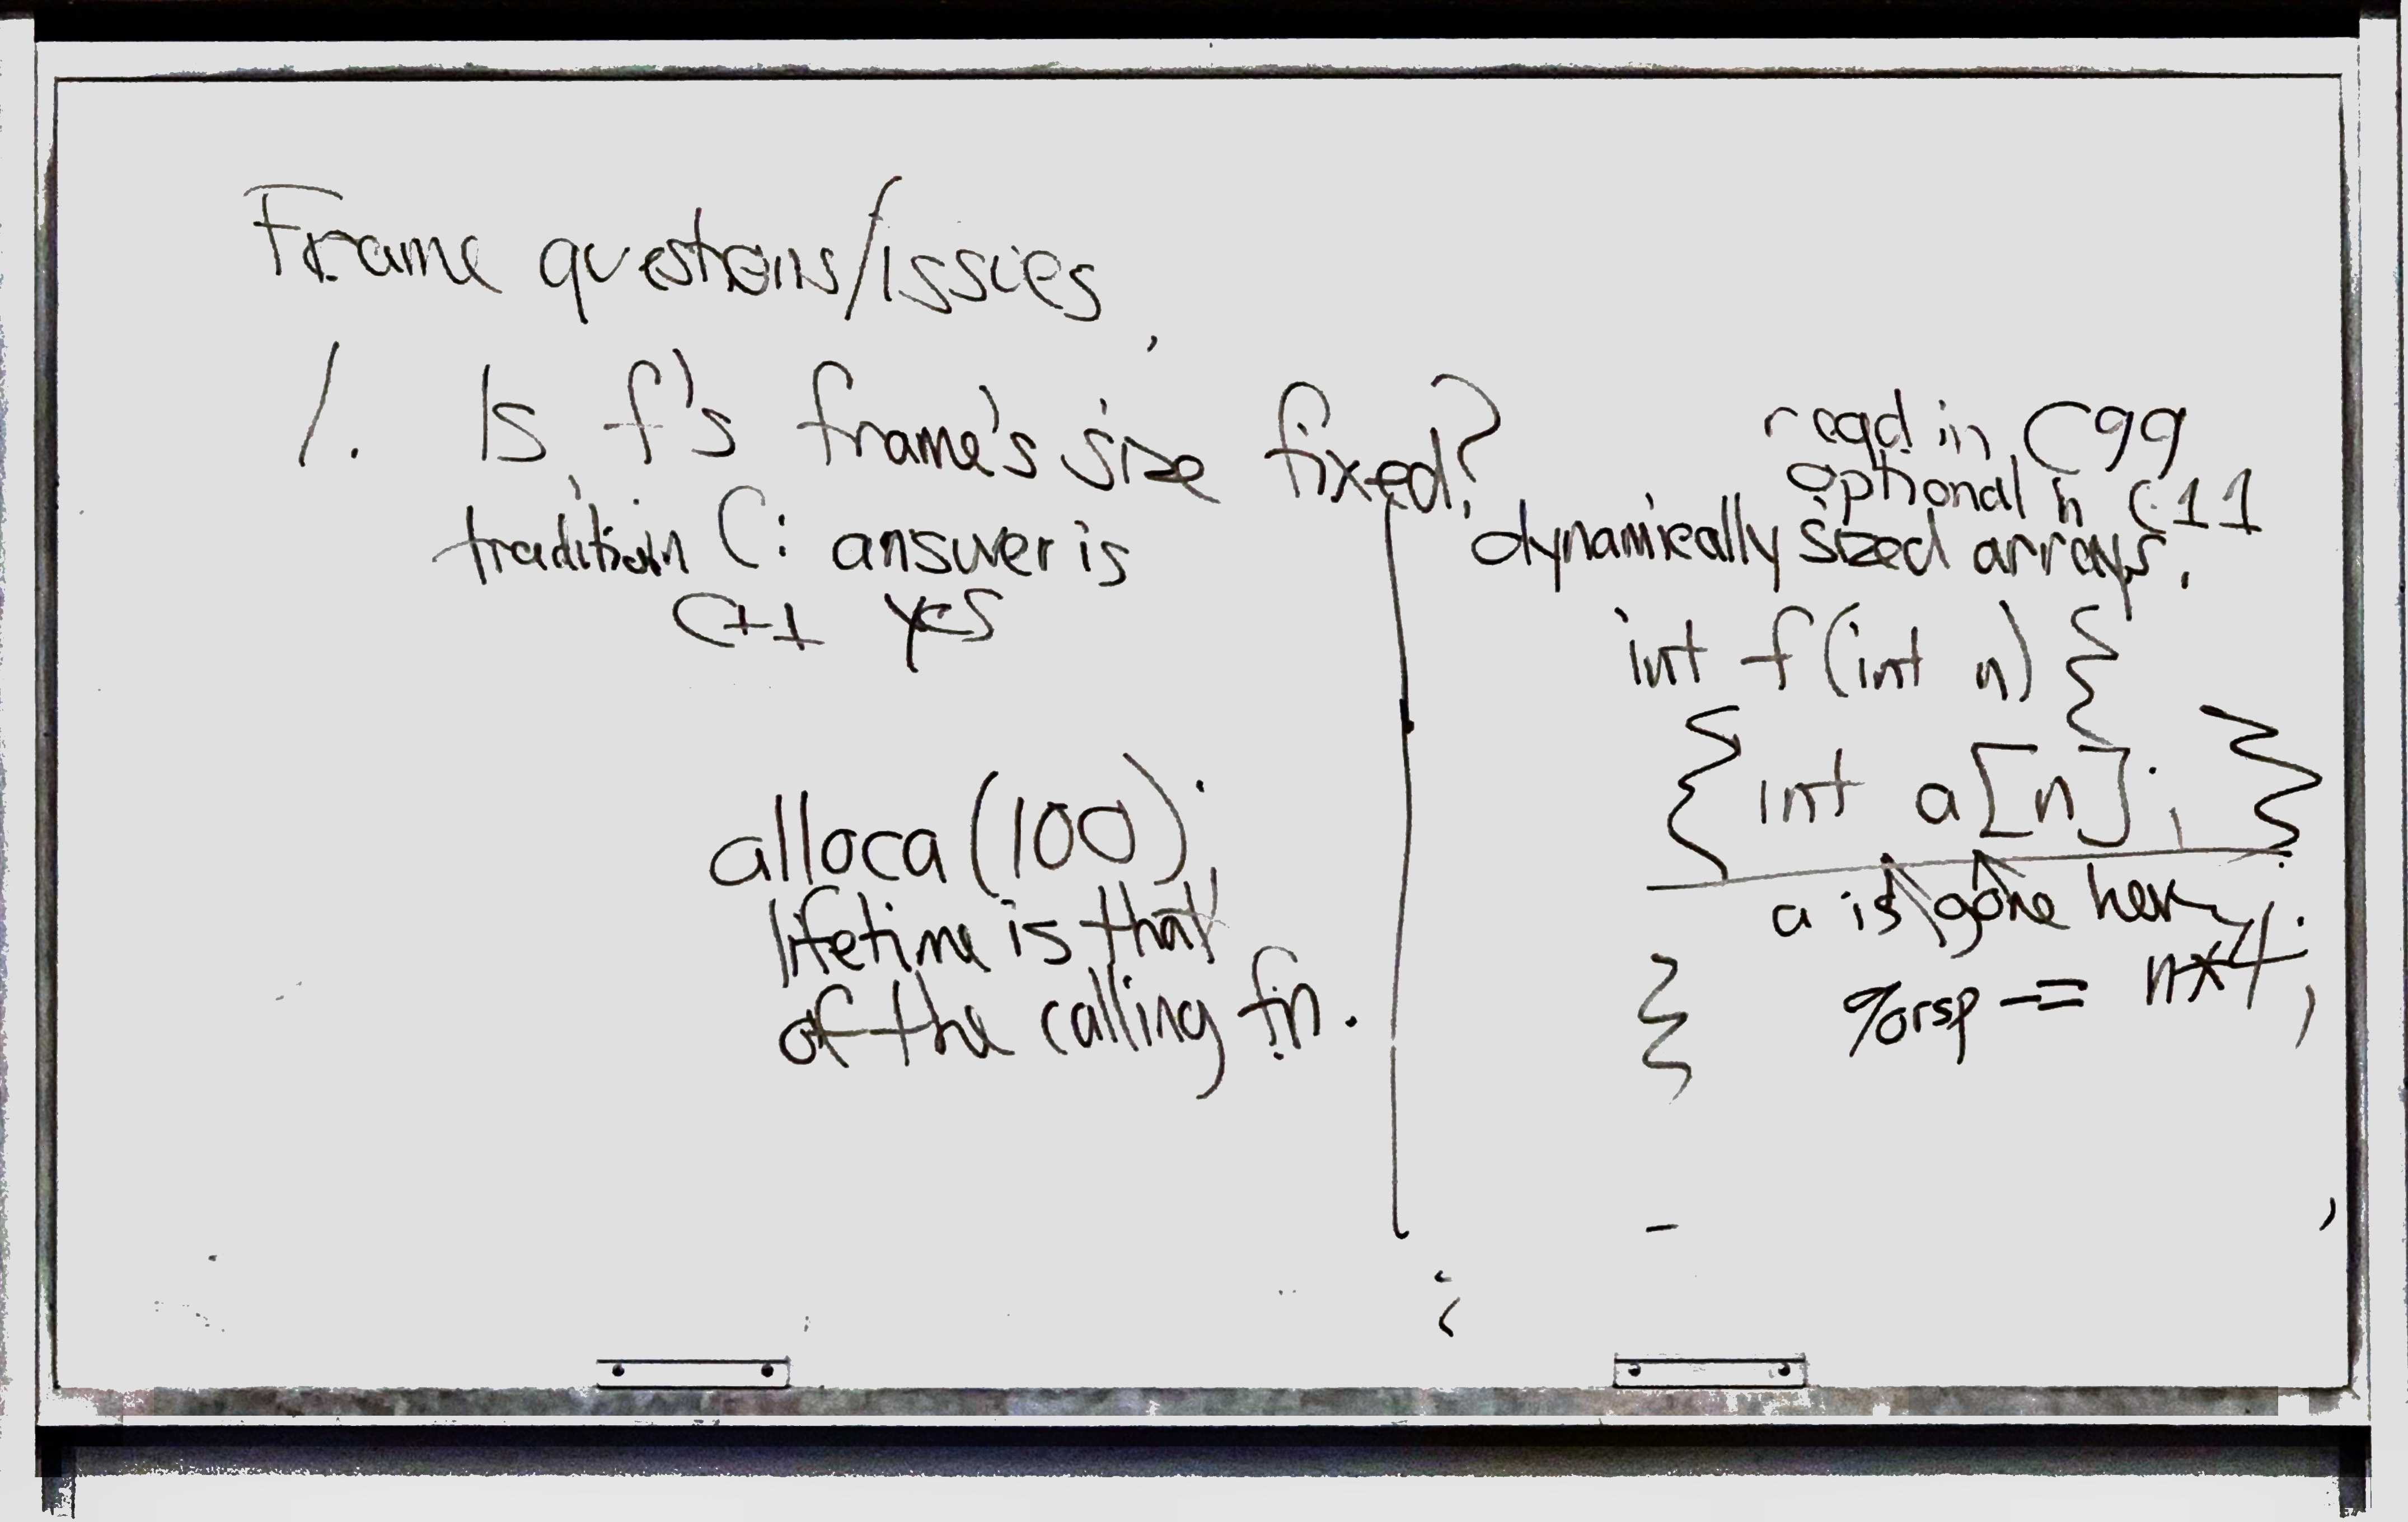 Frame questions/issues
1. Is f's frame's size fixed?
tradition C: answer is
C++ yes
alloca(100);
lifetime is that
of the calling fn.
reqd in C99
optional in C11
dynamically sized arrays.
int f(int n) {
{ int a[n]; }
a is gone here
%rsp -= n*4;
}